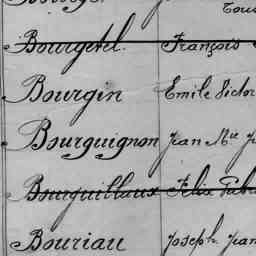 Bourgetel. François
Bourgin Emile Victor
Bourguignon Jean Mie
Bourguillaux Félix
Bouriau Joseph Jean